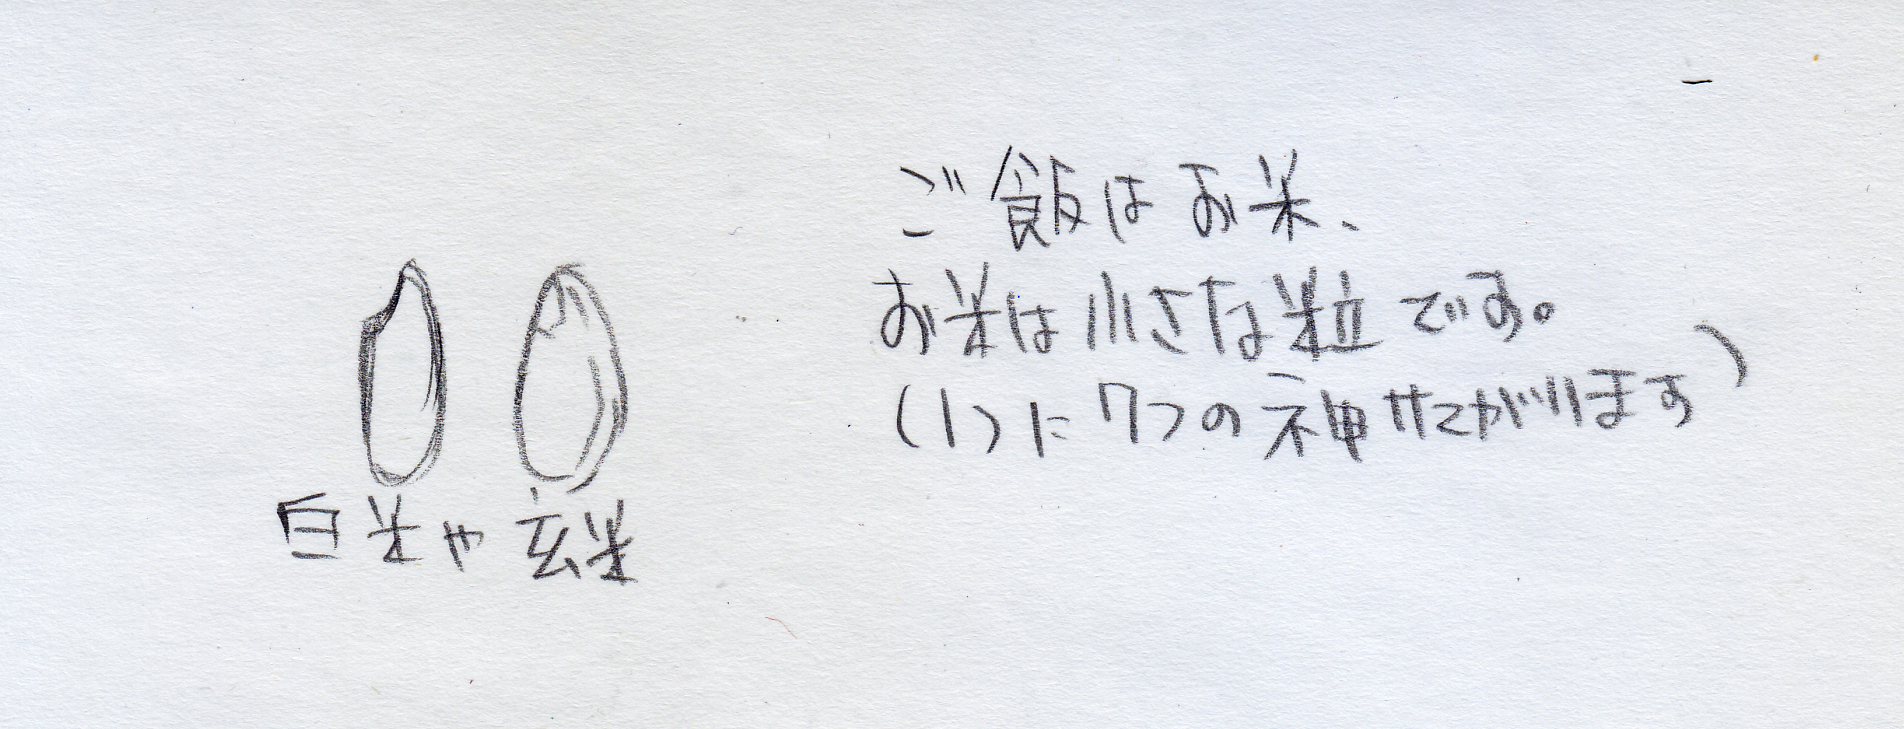 ご飯はお米、
お米は小さな粒です。
(1つに7つの神サマがいます)
白米や玄米